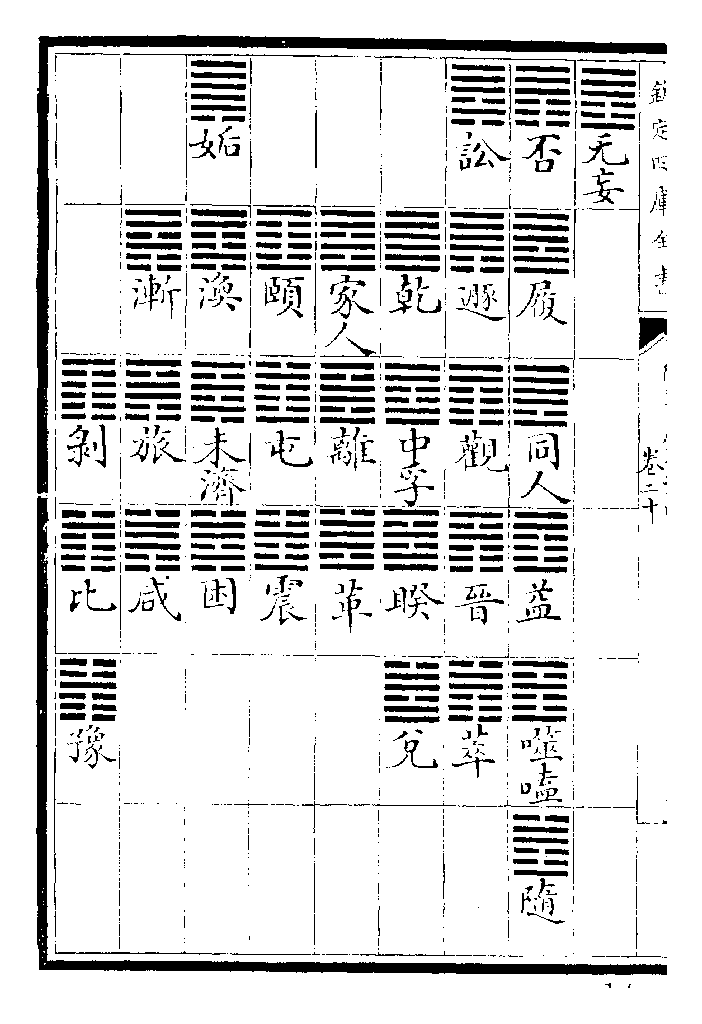 欽定四庫全書
卷二十
无妄
否
履
同人
益
噬嗑
隨
訟
遯
觀
晉
萃
乾
中孚
睽
兌
家人
離
革
頤
屯
震
姤
渙
未濟
困
漸
旅
咸
剝
比
豫